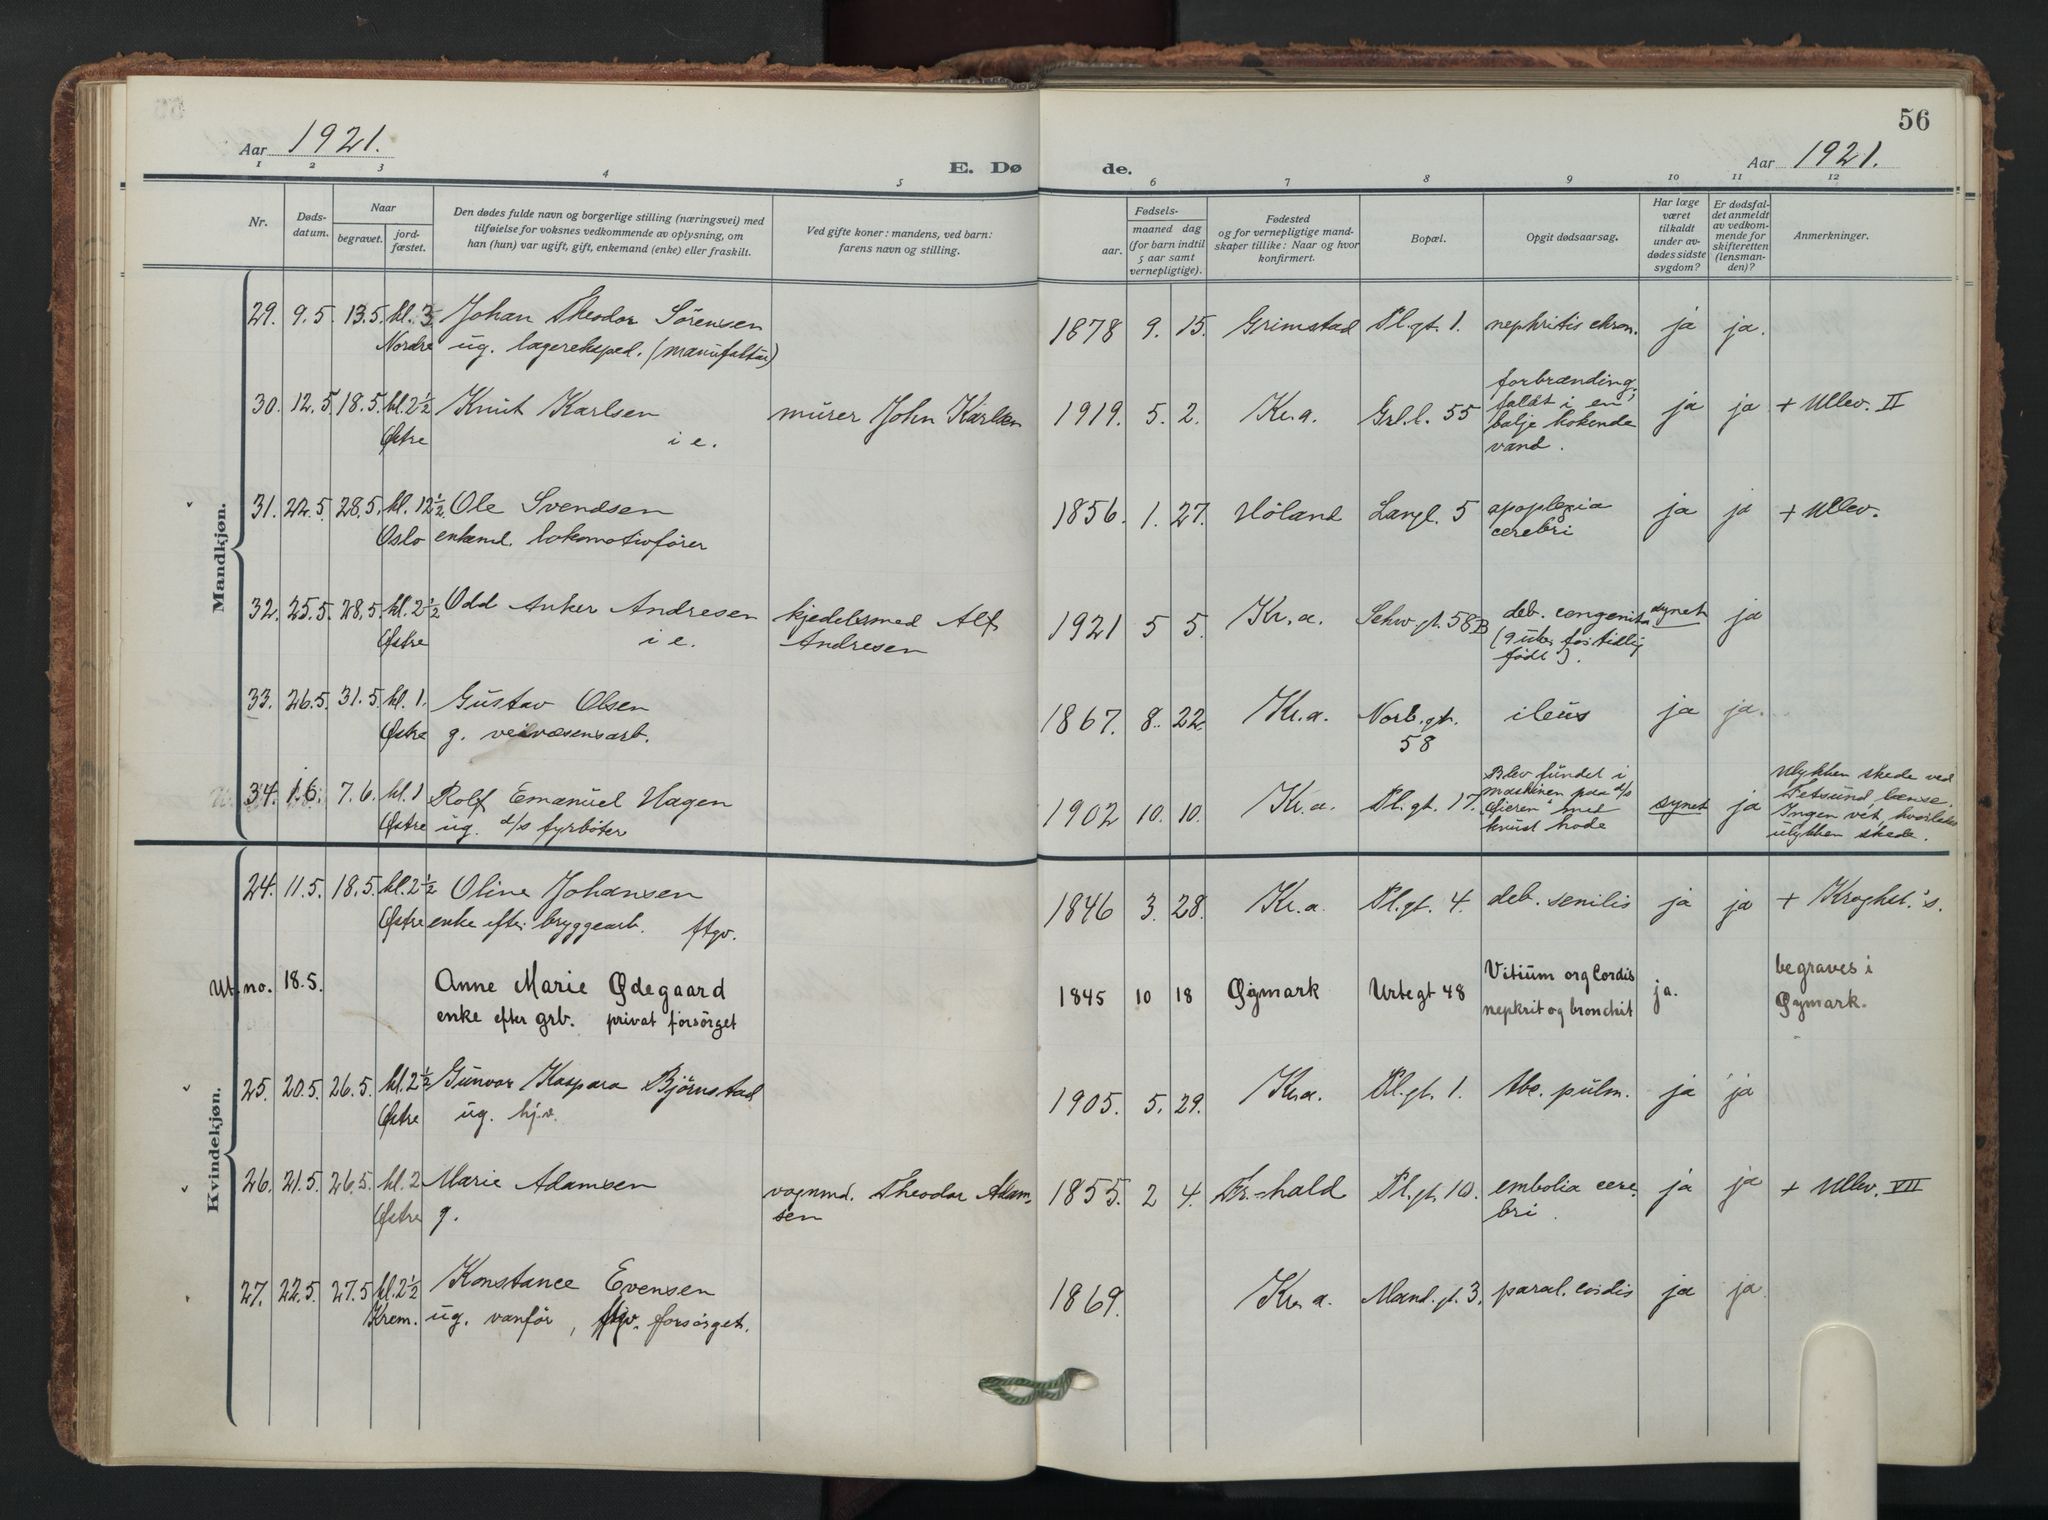 56
Aar 1921.
Aar 1921.
E. Dø de.
1 2 3 4 5 6 7 8 9 10 11 12
Nr.
Døds-
datum.
Naar
begravet.
jord-
fæstet.
Den dødes fulde navn og borgerlige stilling (næringsvei) med
tilføielse for voksnes vedkommende av oplysning, om
han (hun) var ugift, gift, enkemand (enke) eller fraskilt.
Ved gifte koner: mandens, ved barn:
farens navn og stilling.
Fødsels-
aar.
maaned dag
(for barn indtil
5 aar samt
vernepligtige).
Fødested
og for vernepligtige mand-
skaper tillike: Naar og hvor
konfirmert.
Bopæl.
Opgit dødsaarsag.
Har læge
været
tilkaldt
under av-
dødes sidste
sygdom?
Er dødsfal-
det anmeldt
av vedkom-
mende for
skifteretten
(lensman-
den)?
Anmerkninger.
Mandkjøn.
29. 9.5. 13.5. kl. 3 Johan Theodor Sørensen 1878 9. 15. Grimstad Pl.gt. 1. nephritis chron. ja ja.
Nordre ug. lagereksped. (manufaktur)
30. 12.5. 18.5. kl. 2½ Knut Karlsen murer John Karlsen 1919. 5. 2. Kr.a. Grl.l. 55 forbrænding, faldt i en balje kokende vand. ja ja + Ullev. II
Østre i e.
31. 22.5. 28.5. kl. 12½ Ole Svendsen 1856. 1. 27. Høland Langl. 5 apoplexia cerebri ja ja + Ullev.
Oslo enkemd. lokomotivfører
32. 25.5. 28.5. kl. 2½ Odd Anker Andresen kjedelsmed Alf Andresen 1921 5 5. Kr.a. Schw.gt. 58B deb. congenita (9 uker for tidlig født). synet ja
Østre i e.
33. 26.5. 31.5. kl. 1. Gustav Olsen 1867. 8. 22. Kr.a. Norb.gt. 58 ileus ja ja.
Østre g. veivæsensarb.
34. 1.6. 7.6. kl. 1 Rolf Emanuel Hagen 1902 10. 10. Kr.a. Pl.gt. 17. Blev fundet i maskinen paa d/s "Øieren" med knust hode synet ja Ulykken skede ved Fetsund lænse. Ingen vet, hvorledes ulykken skede.
Østre ug. d/s fyrbøter
Kvindekjøn.
24. 11.5. 18.5. kl. 2½ Oline Johansen 1846 3. 28. Kr.a. Pl.gt. 4. deb. senilis ja ja + Kroghst.'s.
Østre enke efter bryggearb. ftgv.
Ut.no. 18.5. Anne Marie Ødegaard 1845 10 18 Øymark Urtegt 48 Vitium org Cordis nephrit og bronchit ja. begraves i Øymark.
enke efter grb. privat forsørget
25. 20.5. 26.5. kl. 2½ Gunvor Kaspara Bjørnstad 1905. 5. 29. Kr.a. Pl.gt. 1. tbc. pulm. ja ja
Østre ug. hj.v.
26. 21.5. 26.5. kl. 2 Marie Adamsen vognmd. Theodor Adamsen 1855. 2 4. Fr.hald Pl.gt. 10. embolia cerebri. ja ja + Ullev. VII
Østre g.
27. 22.5. 27.5 kl. 2½ Konstance Evensen 1869. Kr.a. Mand.gt. 3. paral. cordis ja ja.
Krem. ug. vanfør, ftgv. forsørget.